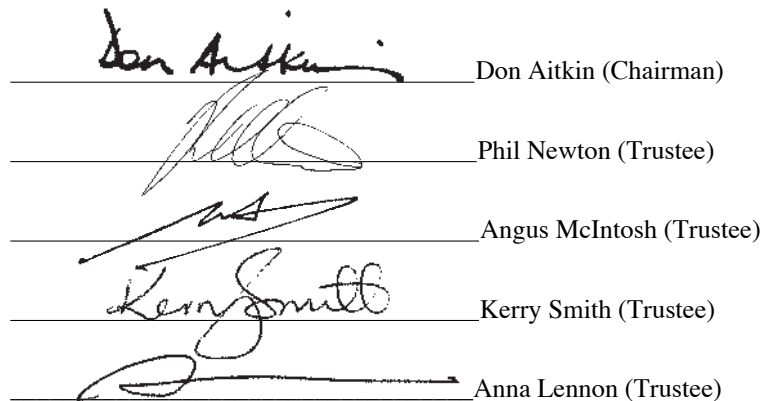 Don Aitkin Don Aitkin (Chairman)
Phil Newton (Trustee)
Angus McIntosh (Trustee)
Kerry Smith Kerry Smith (Trustee)
Anna Lennon (Trustee)